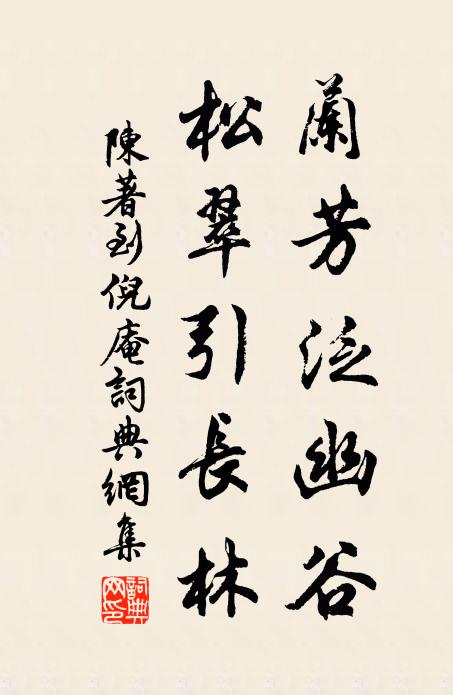 蘭芳泛幽谷
松翠引長林
陳著到倪庵詞典網集
詞典网印